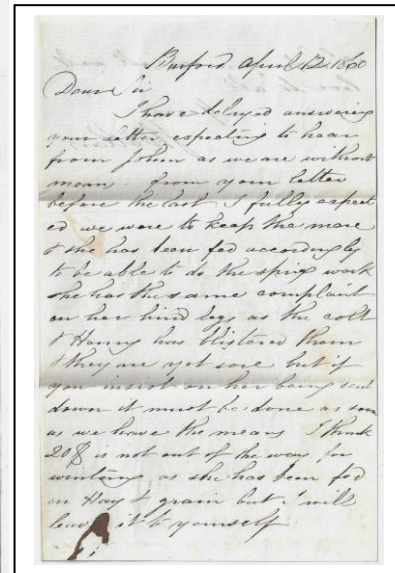 Burford April 12 1860
Dear Sir
I have delayed answering
your letter expecting to hear
from John as we are without
means from your letter
before the last I fully expect
ed we were to keep the mare
& she has been fed accordingly
to be able to do the spring work
she has the same complaint
on her hind legs as the colt
& Henry has blistered them
& they are yet sore but if
you insist on her being sent
down it must be done as soon
as we have the means I think
20$ is not out of the way for
wintering as she has been fed
on Hay & grain but I will
leave it to yourself